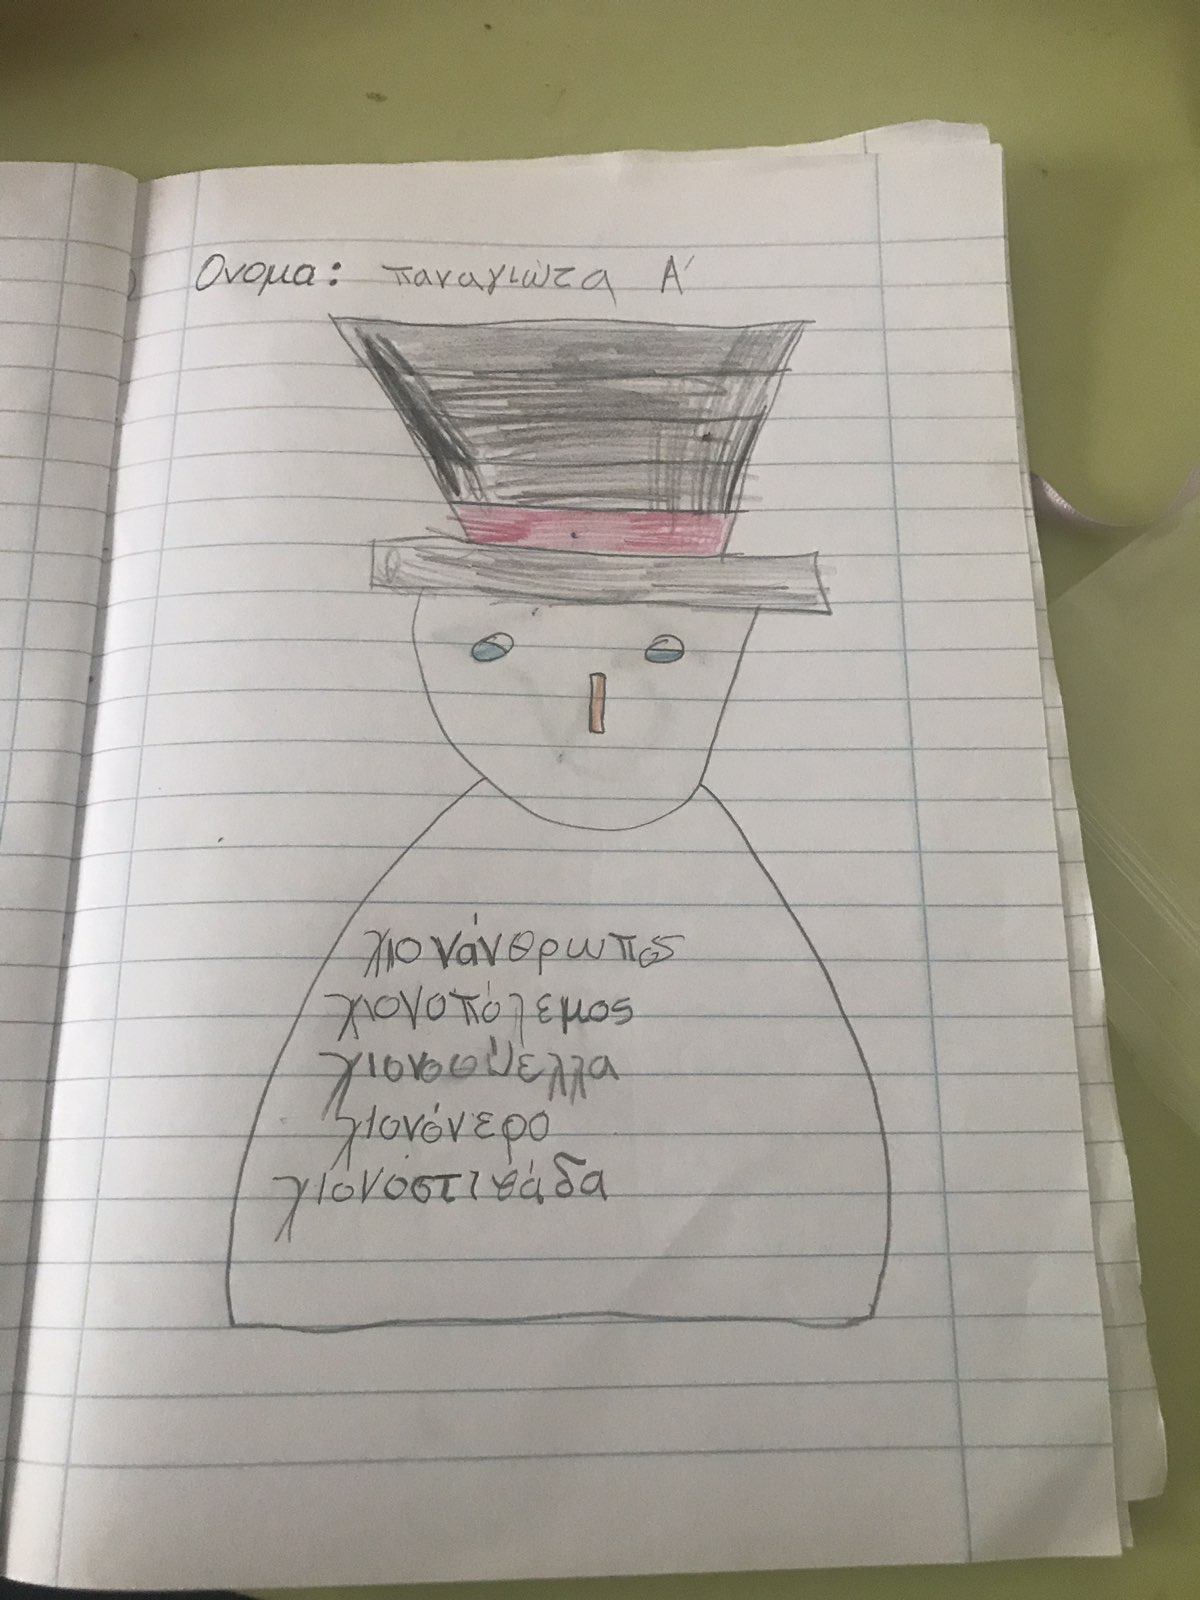 Ονομα: παναγιώτα Α΄
χιονάνθρωπος
χιονοπόλεμος
χιονοθύελλα
χιονόνερο
χιονοστιβάδα